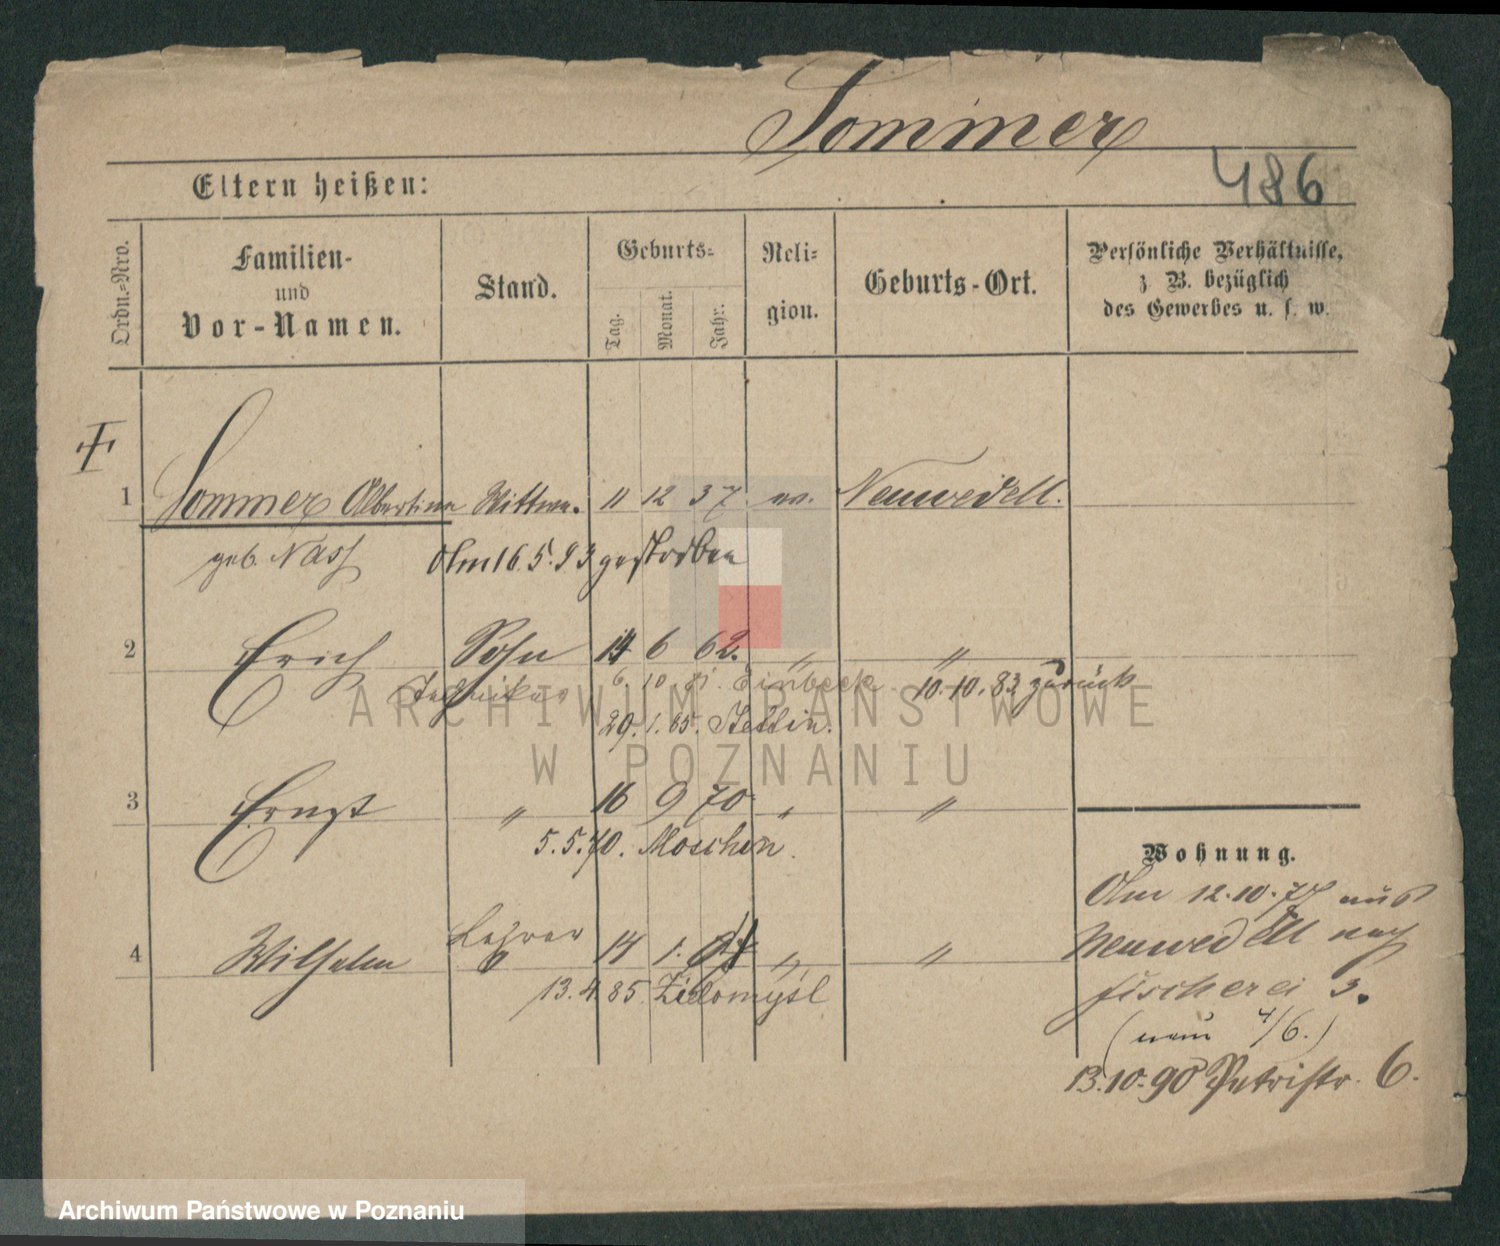 Sommer
486
Eltern heißen:
Ordn.-Nro.
Familien-
und
Vor-Namen.
Stand.
Geburts-
Tag.
Monat.
Jahr.
Reli-
gion.
Geburts-Ort.
Persönliche Verhältnisse,
z B. bezüglich
des Gewerbes u. s. w.
1 Sommer Albertine Wittwe. 11 12 37 ev. Neuwedell.
geb. Nass Am 16.5.93 gestorben
2 Erich Sohn 14 6 62. " "
Techniker 6. 10. Einbeck 10.10.83 zurück
29. 1. 85. Stettin.
3 Ernst " 16 9 70 " "
5.5.70. Moschin.
4 Wilhelm Lehrer 14 1. " "
13.4.85. Zielomysl
Wohnung.
Am 12.10.77 aus
Neuwedell nach
Fischerei 3.
(neu 4/6.)
13.10.90 Petristr. 6.
ARCHIWUM PAŃSTWOWE
W POZNANIU
Archiwum Państwowe w Poznaniu